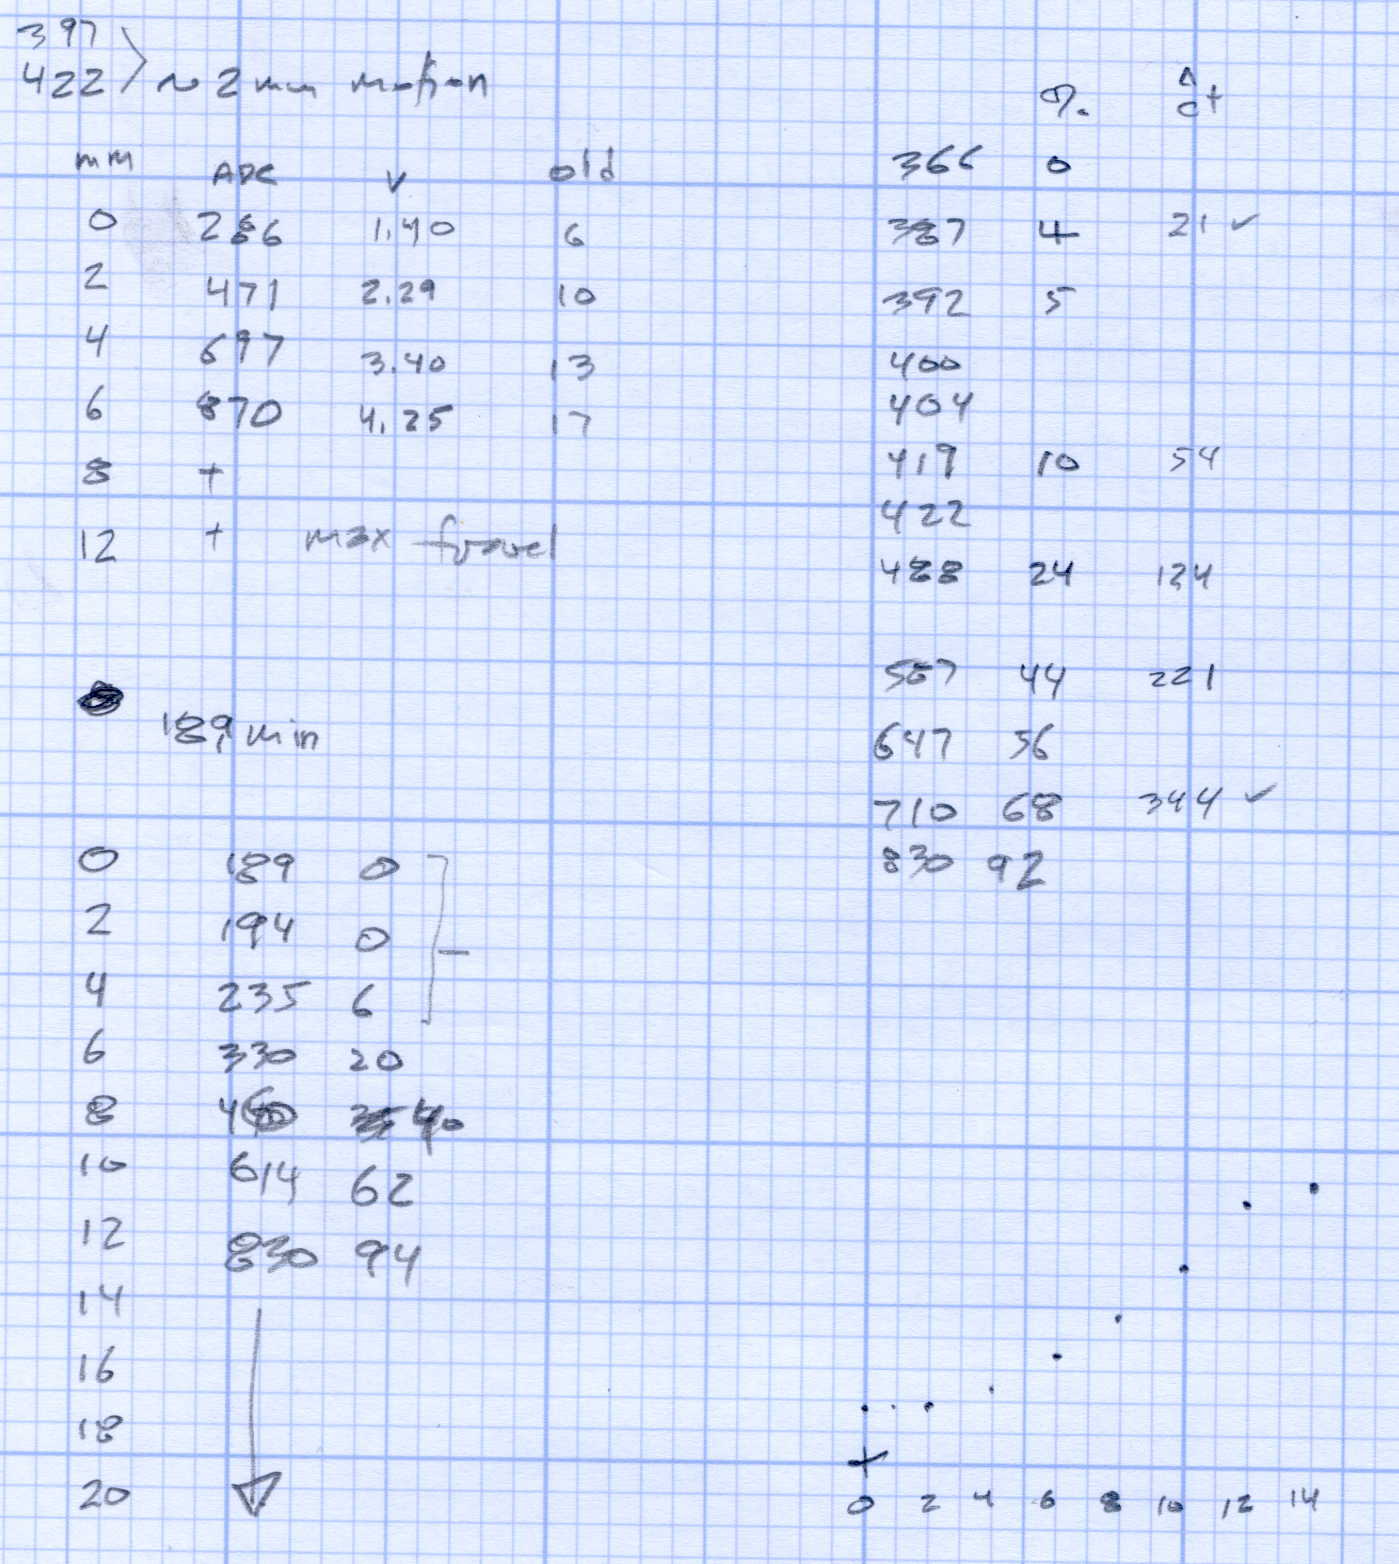 397
422 ~ 2 mm motion
mm ADC V old
0 286 1.40 6
2 471 2.29 10
4 697 3.40 13
6 870 4.25 17
8 +
12 + max travel
189 min
0 189 0
2 194 0
4 235 6
6 330 20
8 460 40
10 614 62
12 830 94
14
16
18
20
% Δ
ct
366 0
387 4 21 ✓
392 5
400
404
419 10 54
422
488 24
44 221
647 56
710 68 344 ✓
830 92
0 2 4 6 8 10 12 14